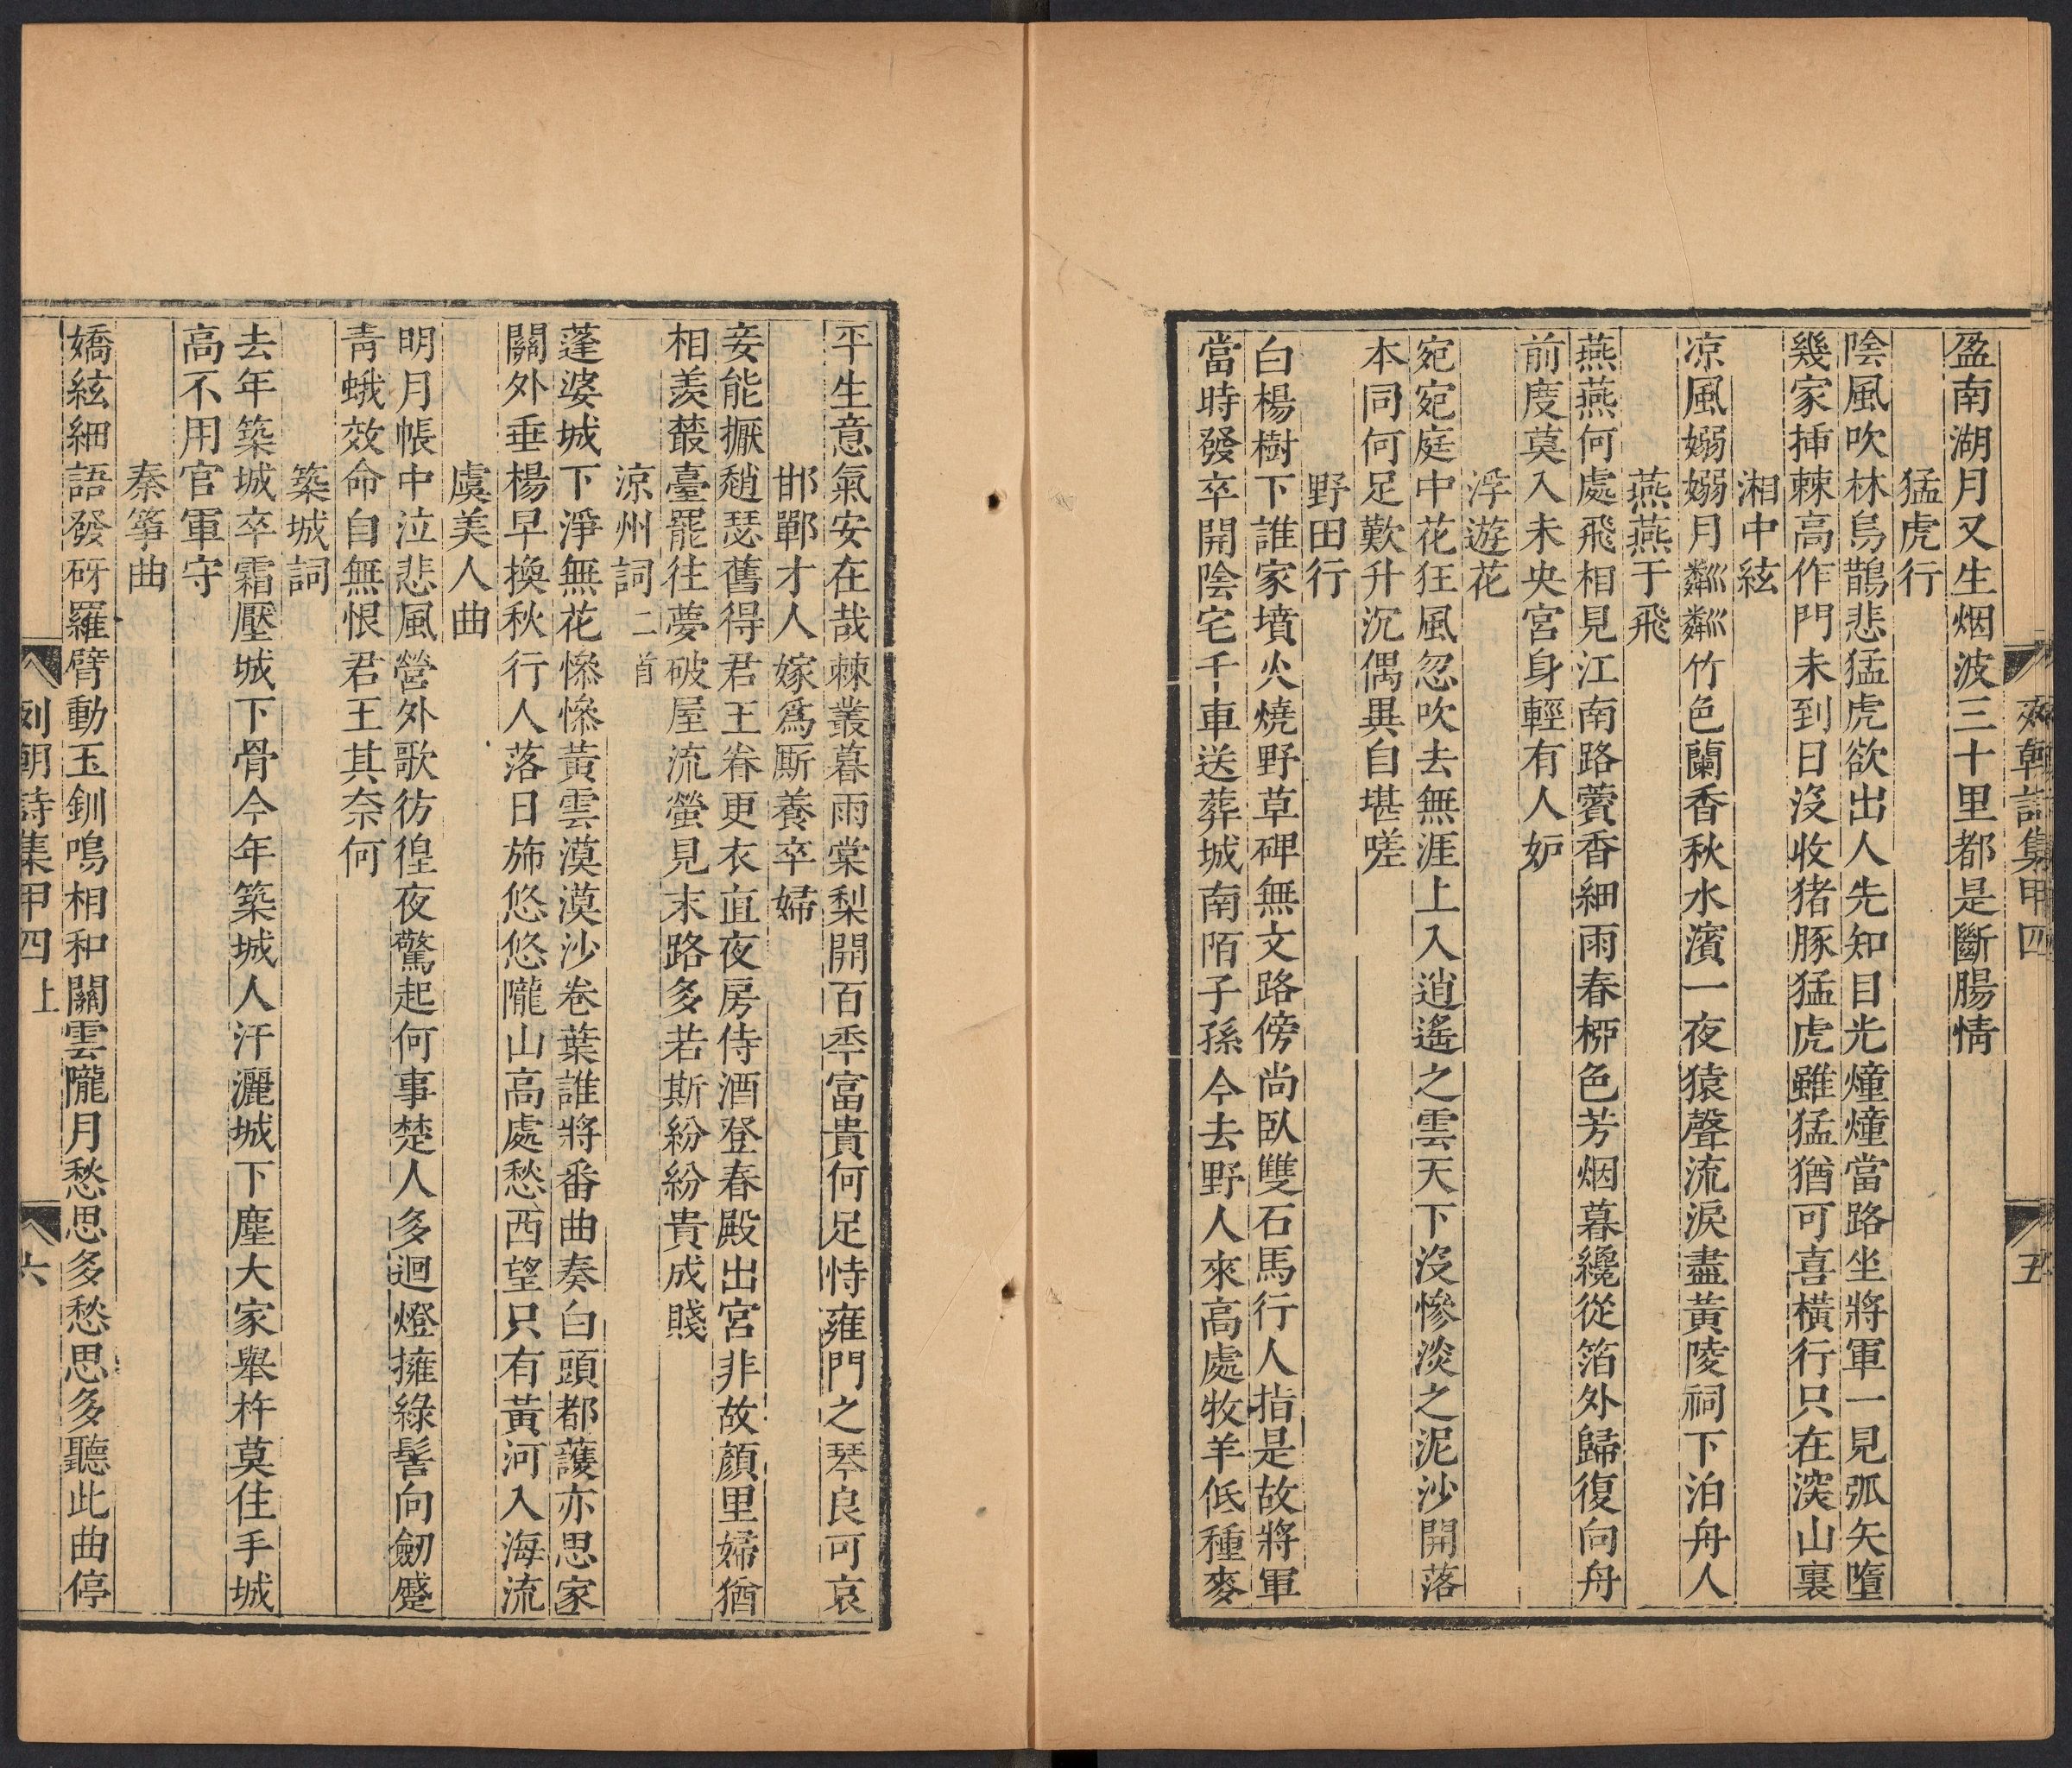 列朝詩集甲四
五
盈南湖月又生烟波三十里都是斷腸情
猛虎行
陰風吹林烏鵲悲猛虎欲出人先知目光㷝㷝當路坐將軍一見弧矢墮
幾家揷棘高作門未到日沒收猪豚猛虎雖猛猶可喜橫行只在深山裏
湘中絃
凉風嫋嫋月粼粼竹色蘭香秋水濱一夜猿聲流淚盡黃陵祠下泊舟人
燕燕于飛
燕燕何處飛相見江南路薲香細雨春桺色芳烟暮纔從箔外歸復向舟
前度莫入未央宮身輕有人妒
浮遊花
宛宛庭中花狂風忽吹去無涯上入逍遙之雲天下沒慘淡之泥沙開落
本同何足歎升沉偶異自堪嗟
野田行
白楊樹下誰家墳火燒野草碑無文路傍尚臥雙石馬行人指是故將軍
當時發卒開陰宅千車送葬城南陌子孫今去野人來高處牧羊低種麥
平生意氣安在哉棘叢暮雨棠梨開百秊富貴何足恃雍門之琴良可哀
邯鄲才人嫁爲厮養卒婦
妾能擫趙瑟舊得君王眷更衣直夜房侍酒登春殿出宮非故顏里婦猶
相羡叢臺罷往夢破屋流螢見末路多若斯紛紛貴成賤
凉州詞二首
蓬婆城下淨無花慘慘黃雲漠漠沙卷葉誰將番曲奏白頭都護亦思家
關外垂楊早換秋行人落日斾悠悠隴山高處愁西望只有黃河入海流
虞美人曲
明月帳中泣悲風營外歌彷徨夜驚起何事楚人多迴燈擁綠髻向劒蹙
靑蛾效命自無恨君王其奈何
築城詞
去年築城卒霜壓城下骨今年築城人汗灑城下塵大家舉杵莫住手城
高不用官軍守
秦箏曲
嬌絃細語發砑羅臂動玉釧鳴相和關雲隴月愁思多愁思多聽此曲停
列朝詩集甲四上
六